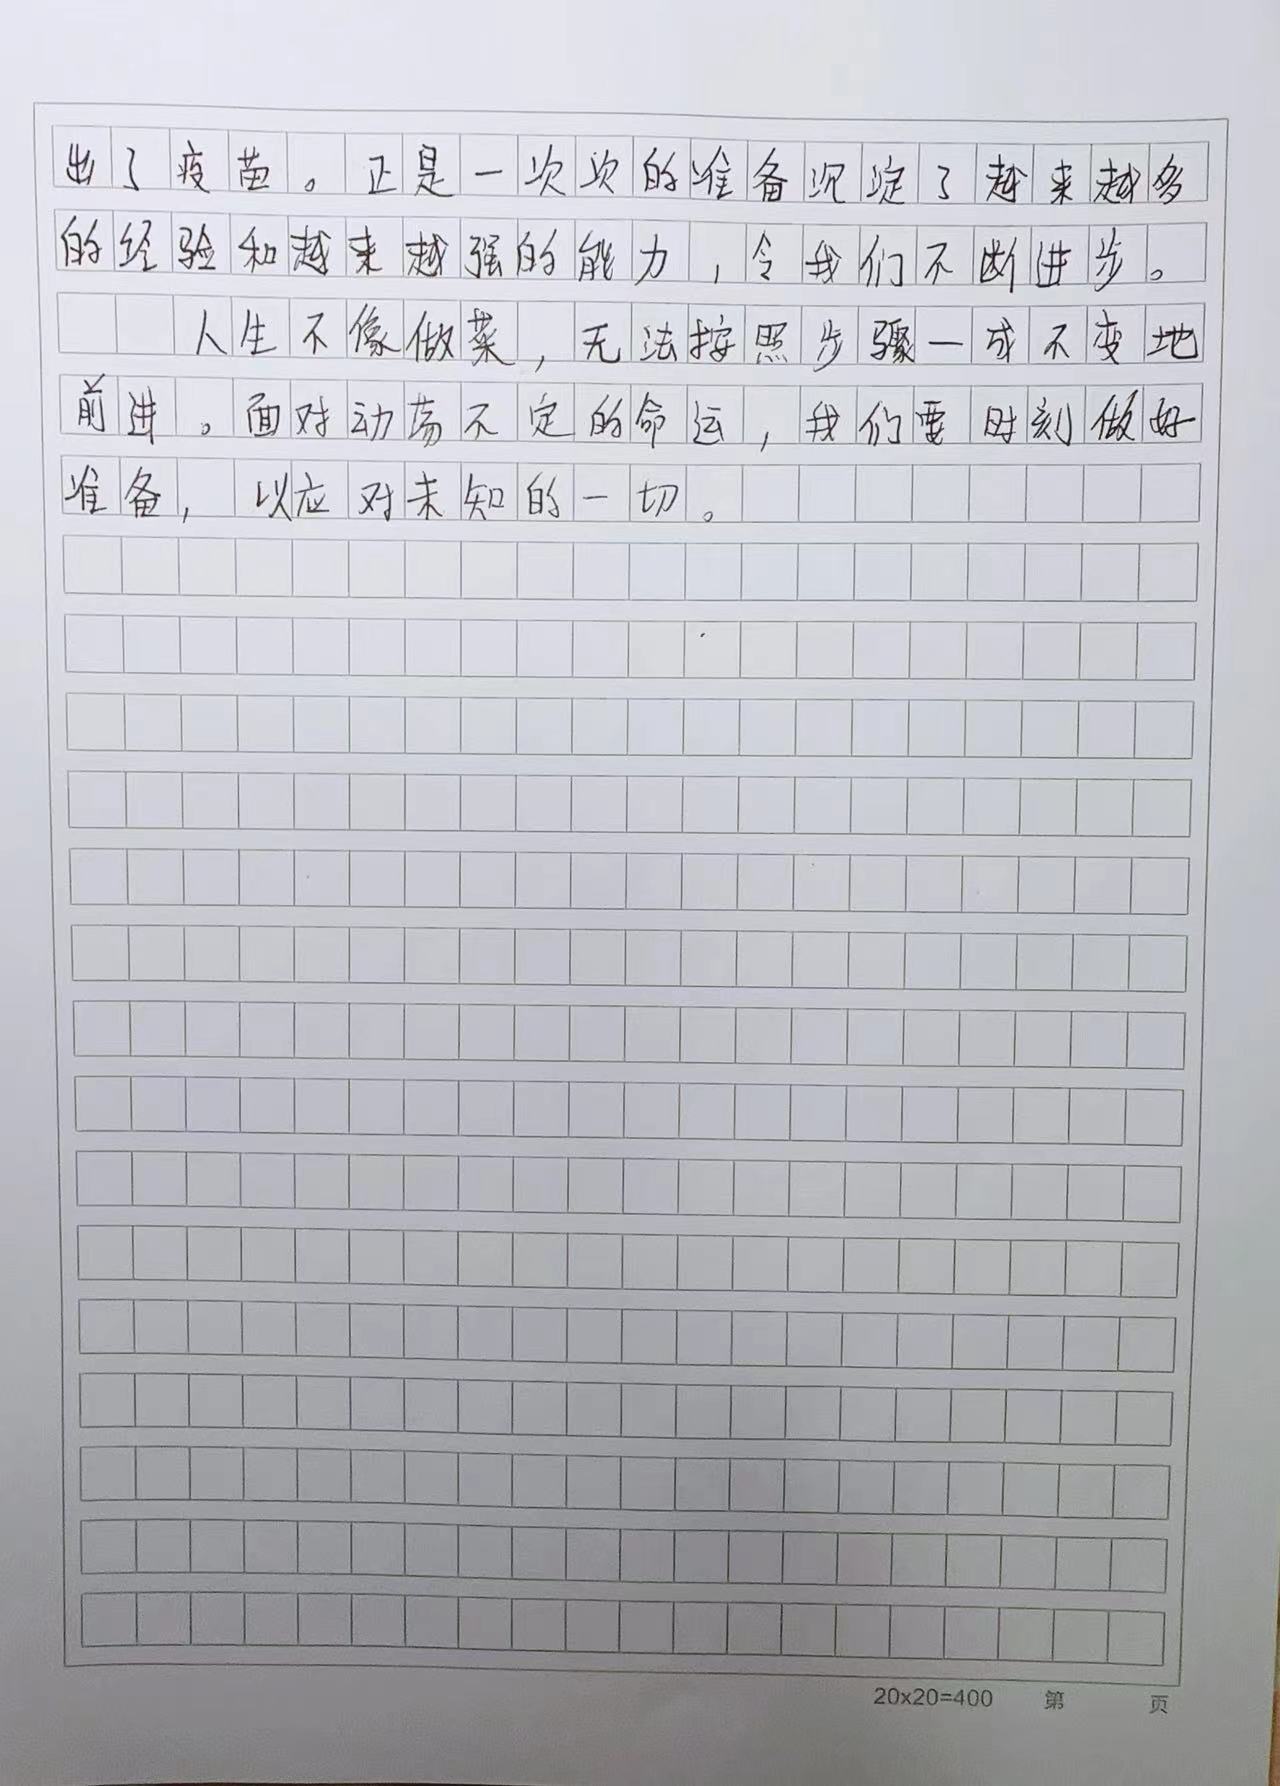 出了疫苗。正是一次次的准备沉淀了越来越多
的经验和越来越强的能力，令我们不断进步。
人生不像做菜，无法按照步骤一成不变地
前进。面对动荡不定的命运，我们要时刻做好
准备，以应对未知的一切。
20x20=400 第 页